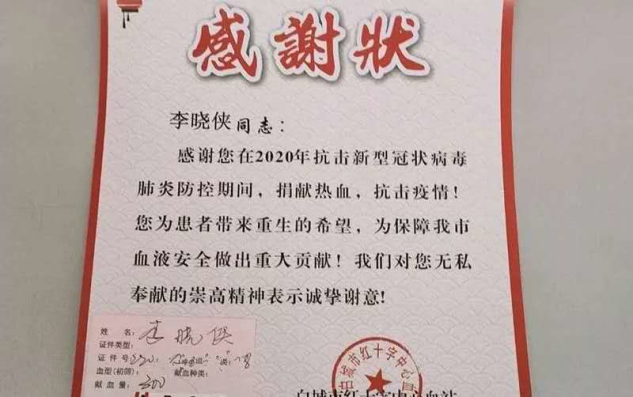 感謝狀
李晓侠同志：
感谢您在2020年抗击新型冠状病毒
肺炎防控期间，捐献热血，抗击疫情！
您为患者带来重生的希望，为保障我市
血液安全做出重大贡献！我们对您无私
奉献的崇高精神表示诚挚谢意！
姓 名：李晓侠
证件类型：
证 件 号：
血型（初筛）： 献血种类：
献血量：300
白城市红十字中心血
白城市红十字中心血站